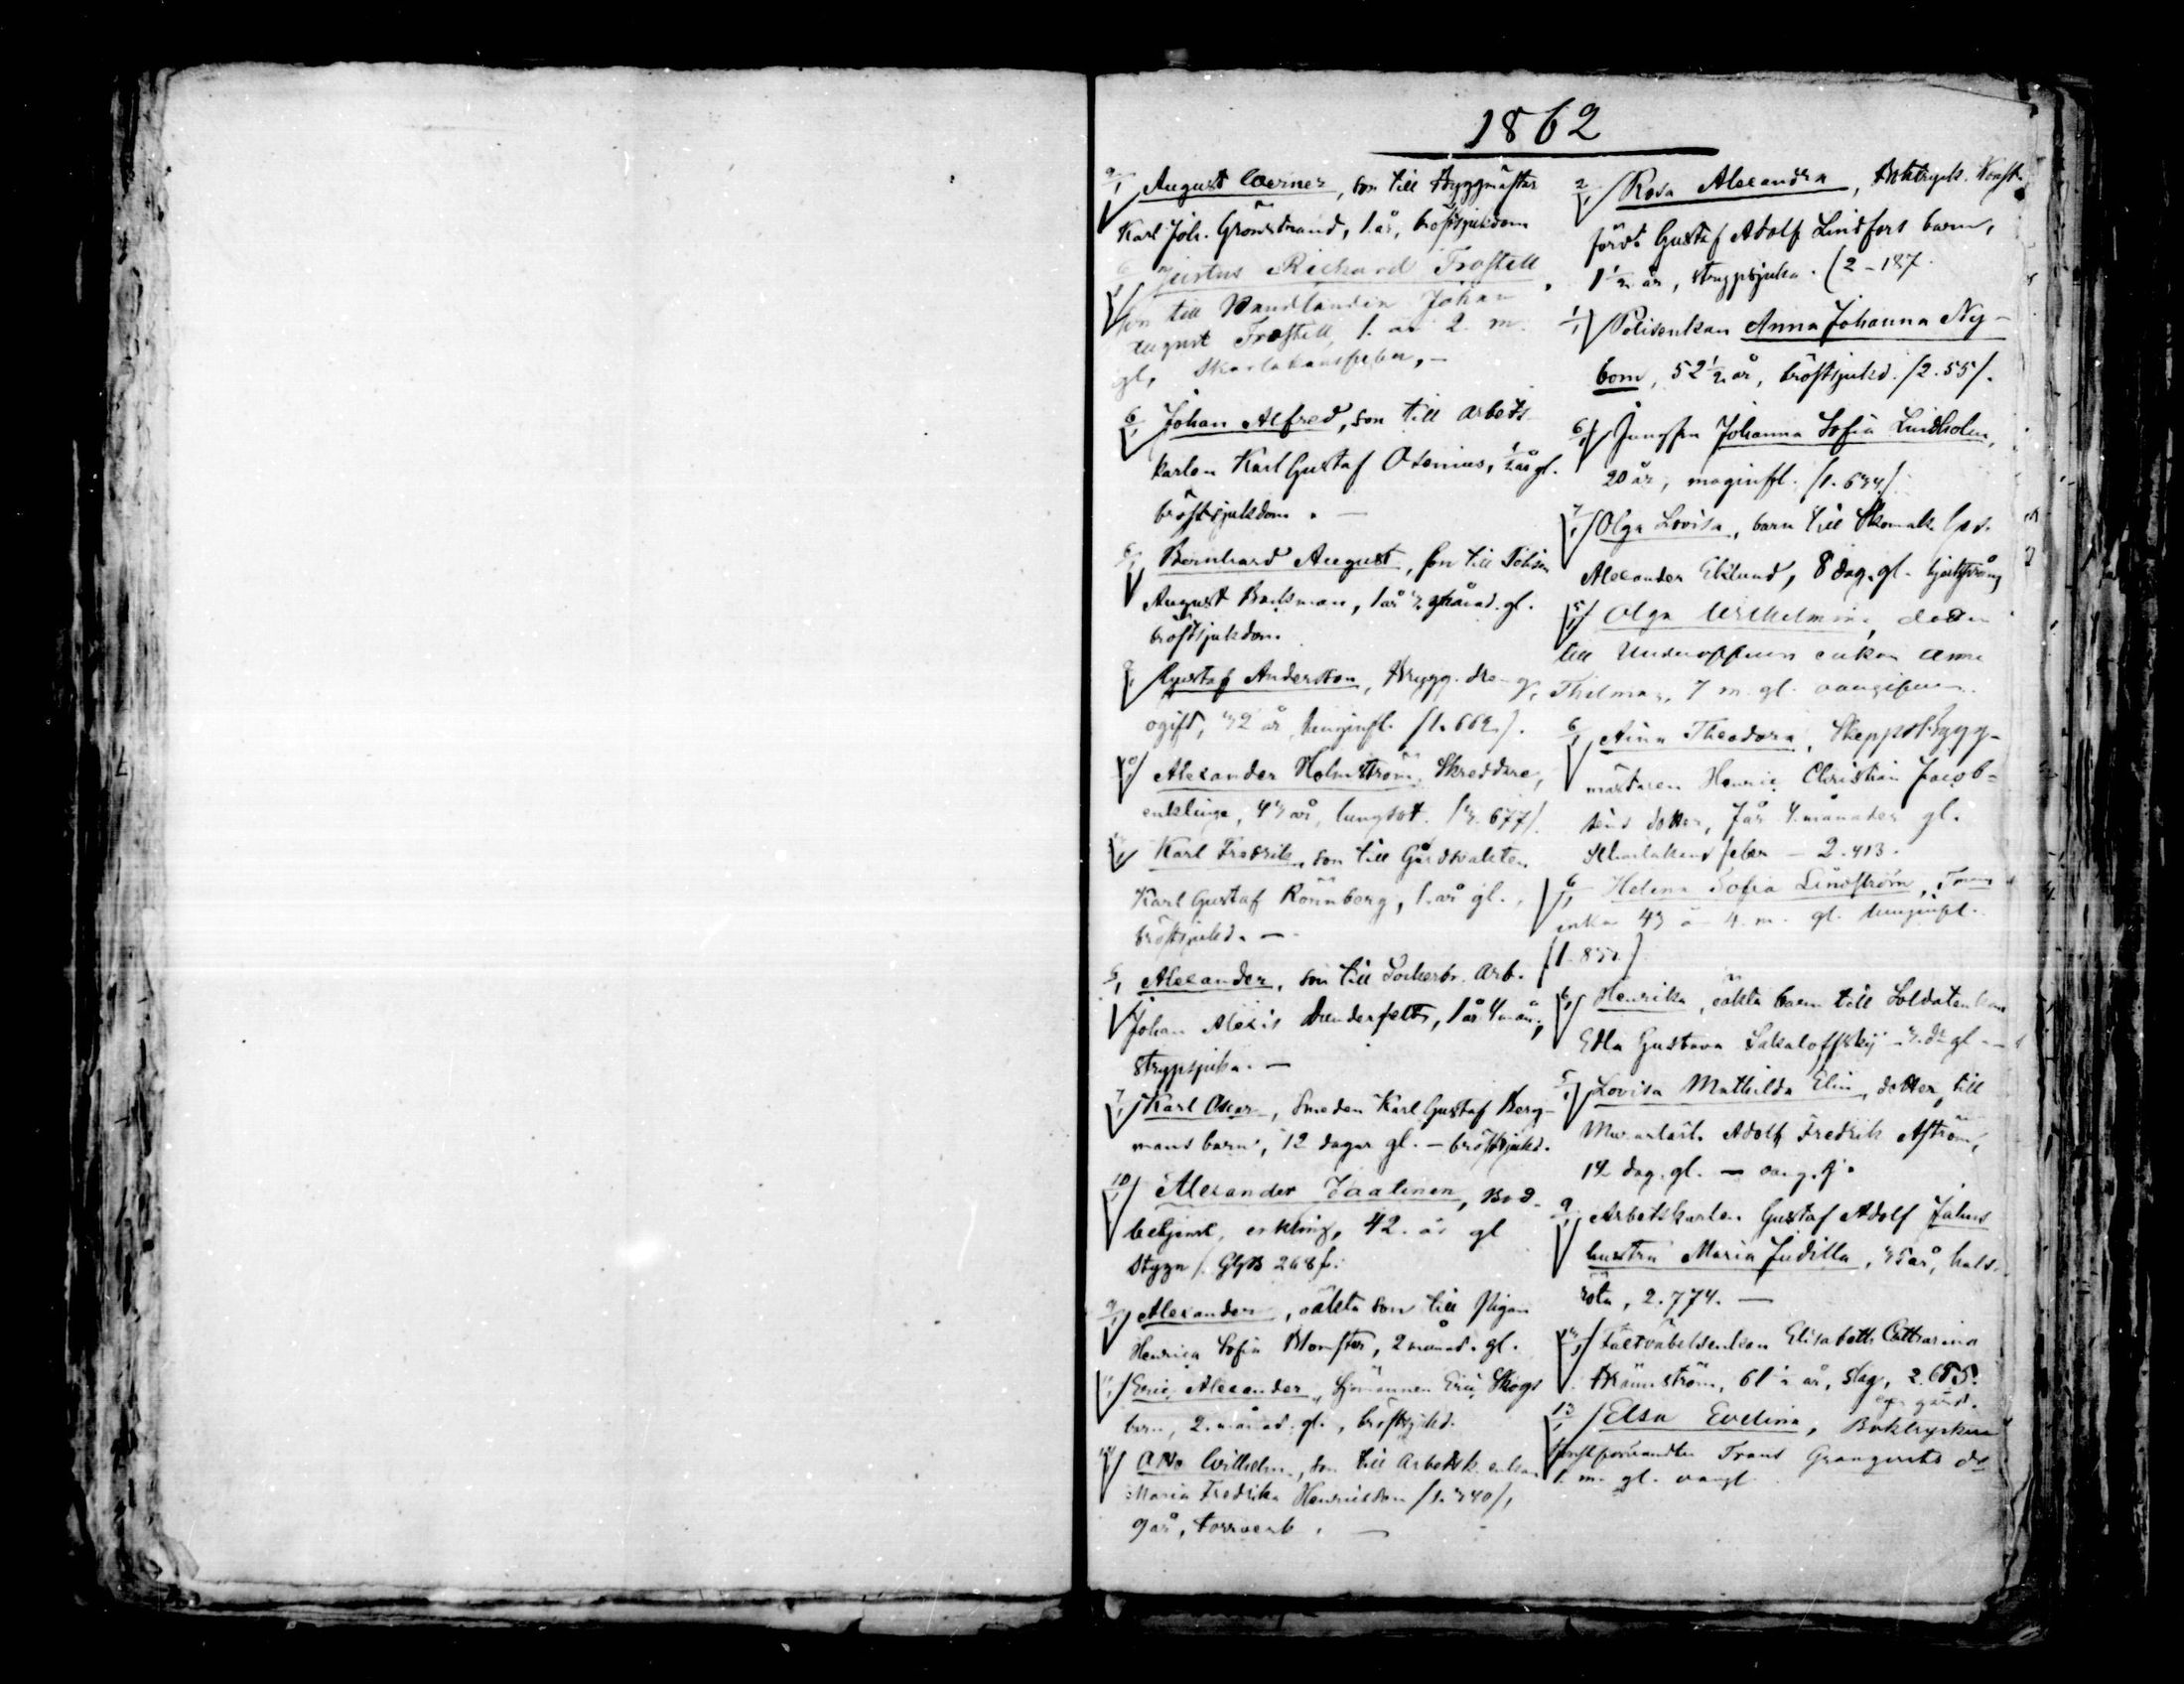 1862
2/1 August Werner, son till Byggmästar
Karl Joh. Grönstrand, 1. år, bröstsjukdom
Justus Rickard Frostell
son till Handlanden Johan
August Frostell, 1. år 2. m.
gl, Skarlakansfeber, –
6/1 Johan Alfred, son till arbets
karlen Karl Gustaf Osenius, 1/2 år gl.
bröstsjukdom. –
6/1 Bernhard August, son till
August Boxman, 1 år månad. gl.
bröstsjukdom.
Gustaf Anderston, Brygg. dreng,
ogift, 32 år, lunginfl. /1. 662./.
10/1 Alexander Holmström, Skreddare,
enkling, 43 år, lungsot. /3. 677/.
Karl Fredrik, son till Gårdsvakten
Karl Gustaf Rönnberg, 1. år gl.,
bröstsjukd. –
6/1 Alexander, son till Sockerbr. Arb.
Johan Alexis Dunderfelts, 1 år 4 mån.,
strypsjuka. –
7/1 Karl Oscar, Smeden Karl Gustaf Berg-
mans barn, 12 dagar gl. – bröstsjukd.
10/1 Alexander Jaalinen, Bod-
betjent, enkling, 42. år gl
Stygn /. GlgB 268 /.
9/1 Alexander, oäkta son till Pigan
Henrica Sofia Blomster, 2 månad. gl.
Eric Alexander, Sjömannen Eric Skogs
barn, 2. månad. gl., bröstsjukd.
Otto Wilhelm, son till Arbetsk. enkan
Maria Fredrika Henricsson /1. 340/,
9 år, torrverk. –
2/1 Rosa Alexandra, Boktryck. Konst-
förvt Gustaf Adolf Lindfors barn,
1 1/2 år, strypsjuka. (2 – 187.
1/1 Polisenkan Anna Johanna Ny-
bom, 52 1/2 år, bröstsjukd. /2. 55/.
6/1 Jungfru Johanna Sofia Lindholm,
20 år, maginfl. /1. 634/
7/1 Olga Lovisa, barn till Skomak. Ges.
Alexander Eklund, 8 dag. gl.
5/1 Olga Wilhelmina, dotter
till Underofficers enkan Anna
Thelman, 7 m. gl. oangifven.
6/1 Aina Theodora, Skeppsbygg-
mästaren Henric Christian Jacob-
sens dotter, 7 år 4. månader gl.
Skarlakans feber – 2. 413.
6/1 Helena Sofia Lindström,
enka 43 å 4. m. gl. lunginfl.
6/1 Henrika, oäkta barn till Soldatenkan
Edla Gustava Sakaloffskij 3. dr gl –
5/1 Lovisa Mathilda Elin, dotter till
Murarlärl. Adolf Fredrik Åström,
12 dag. gl. – oang. sj.
9/1 Arbetskarlen Gustaf Adolf Jalins
hustru Maria Judilla, 35 år, hals-
röta, 2. 774. –
Fältväbelsenkan Elisabeth Catharina
Brännström, 61 1/2 år, slag, 2. 655.
13/1 Elsa Evelina, Boktryckeri
konstförvandten Frans Granqvists dr
1. m. gl. oangf.